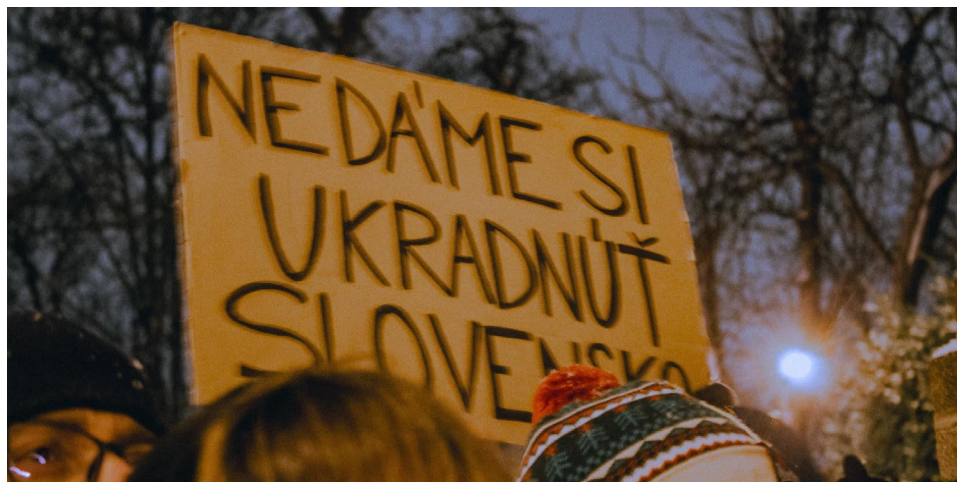 NEDÁME SI
UKRADNÚŤ
SLOVENSKO